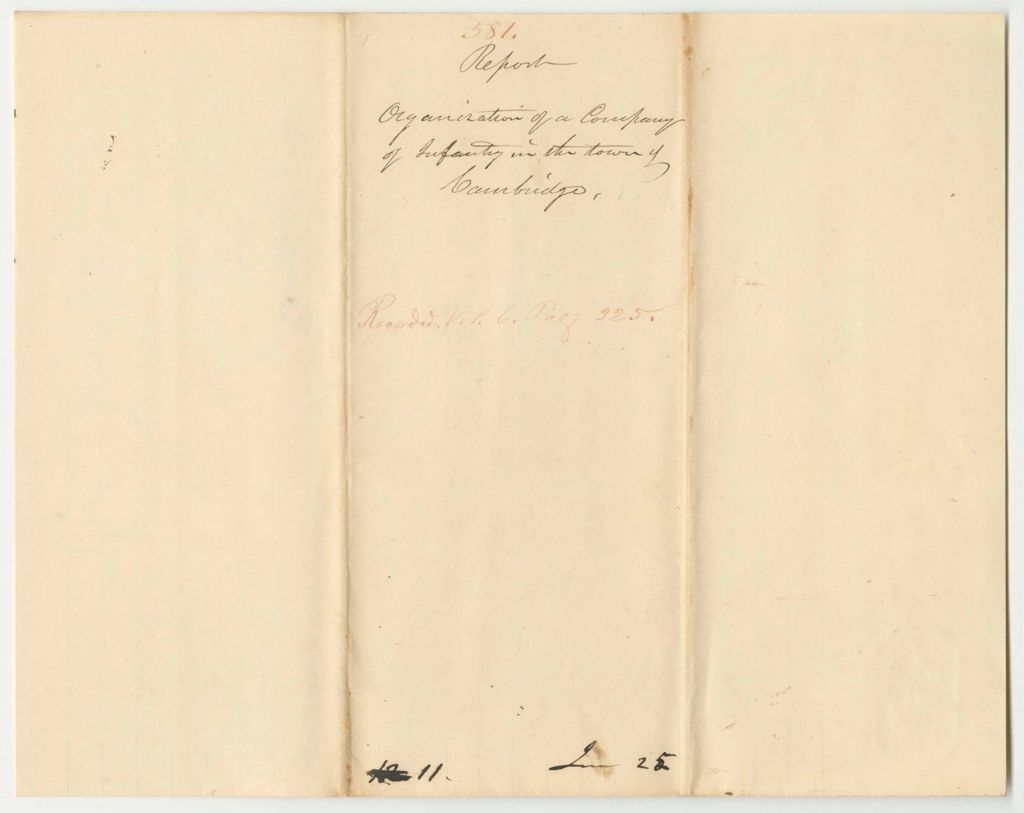 581.
Report
Organization of a Company
of Infantry in the town of
Cambridge,
Recorded. Vol. 6. Page 325.
11. 25